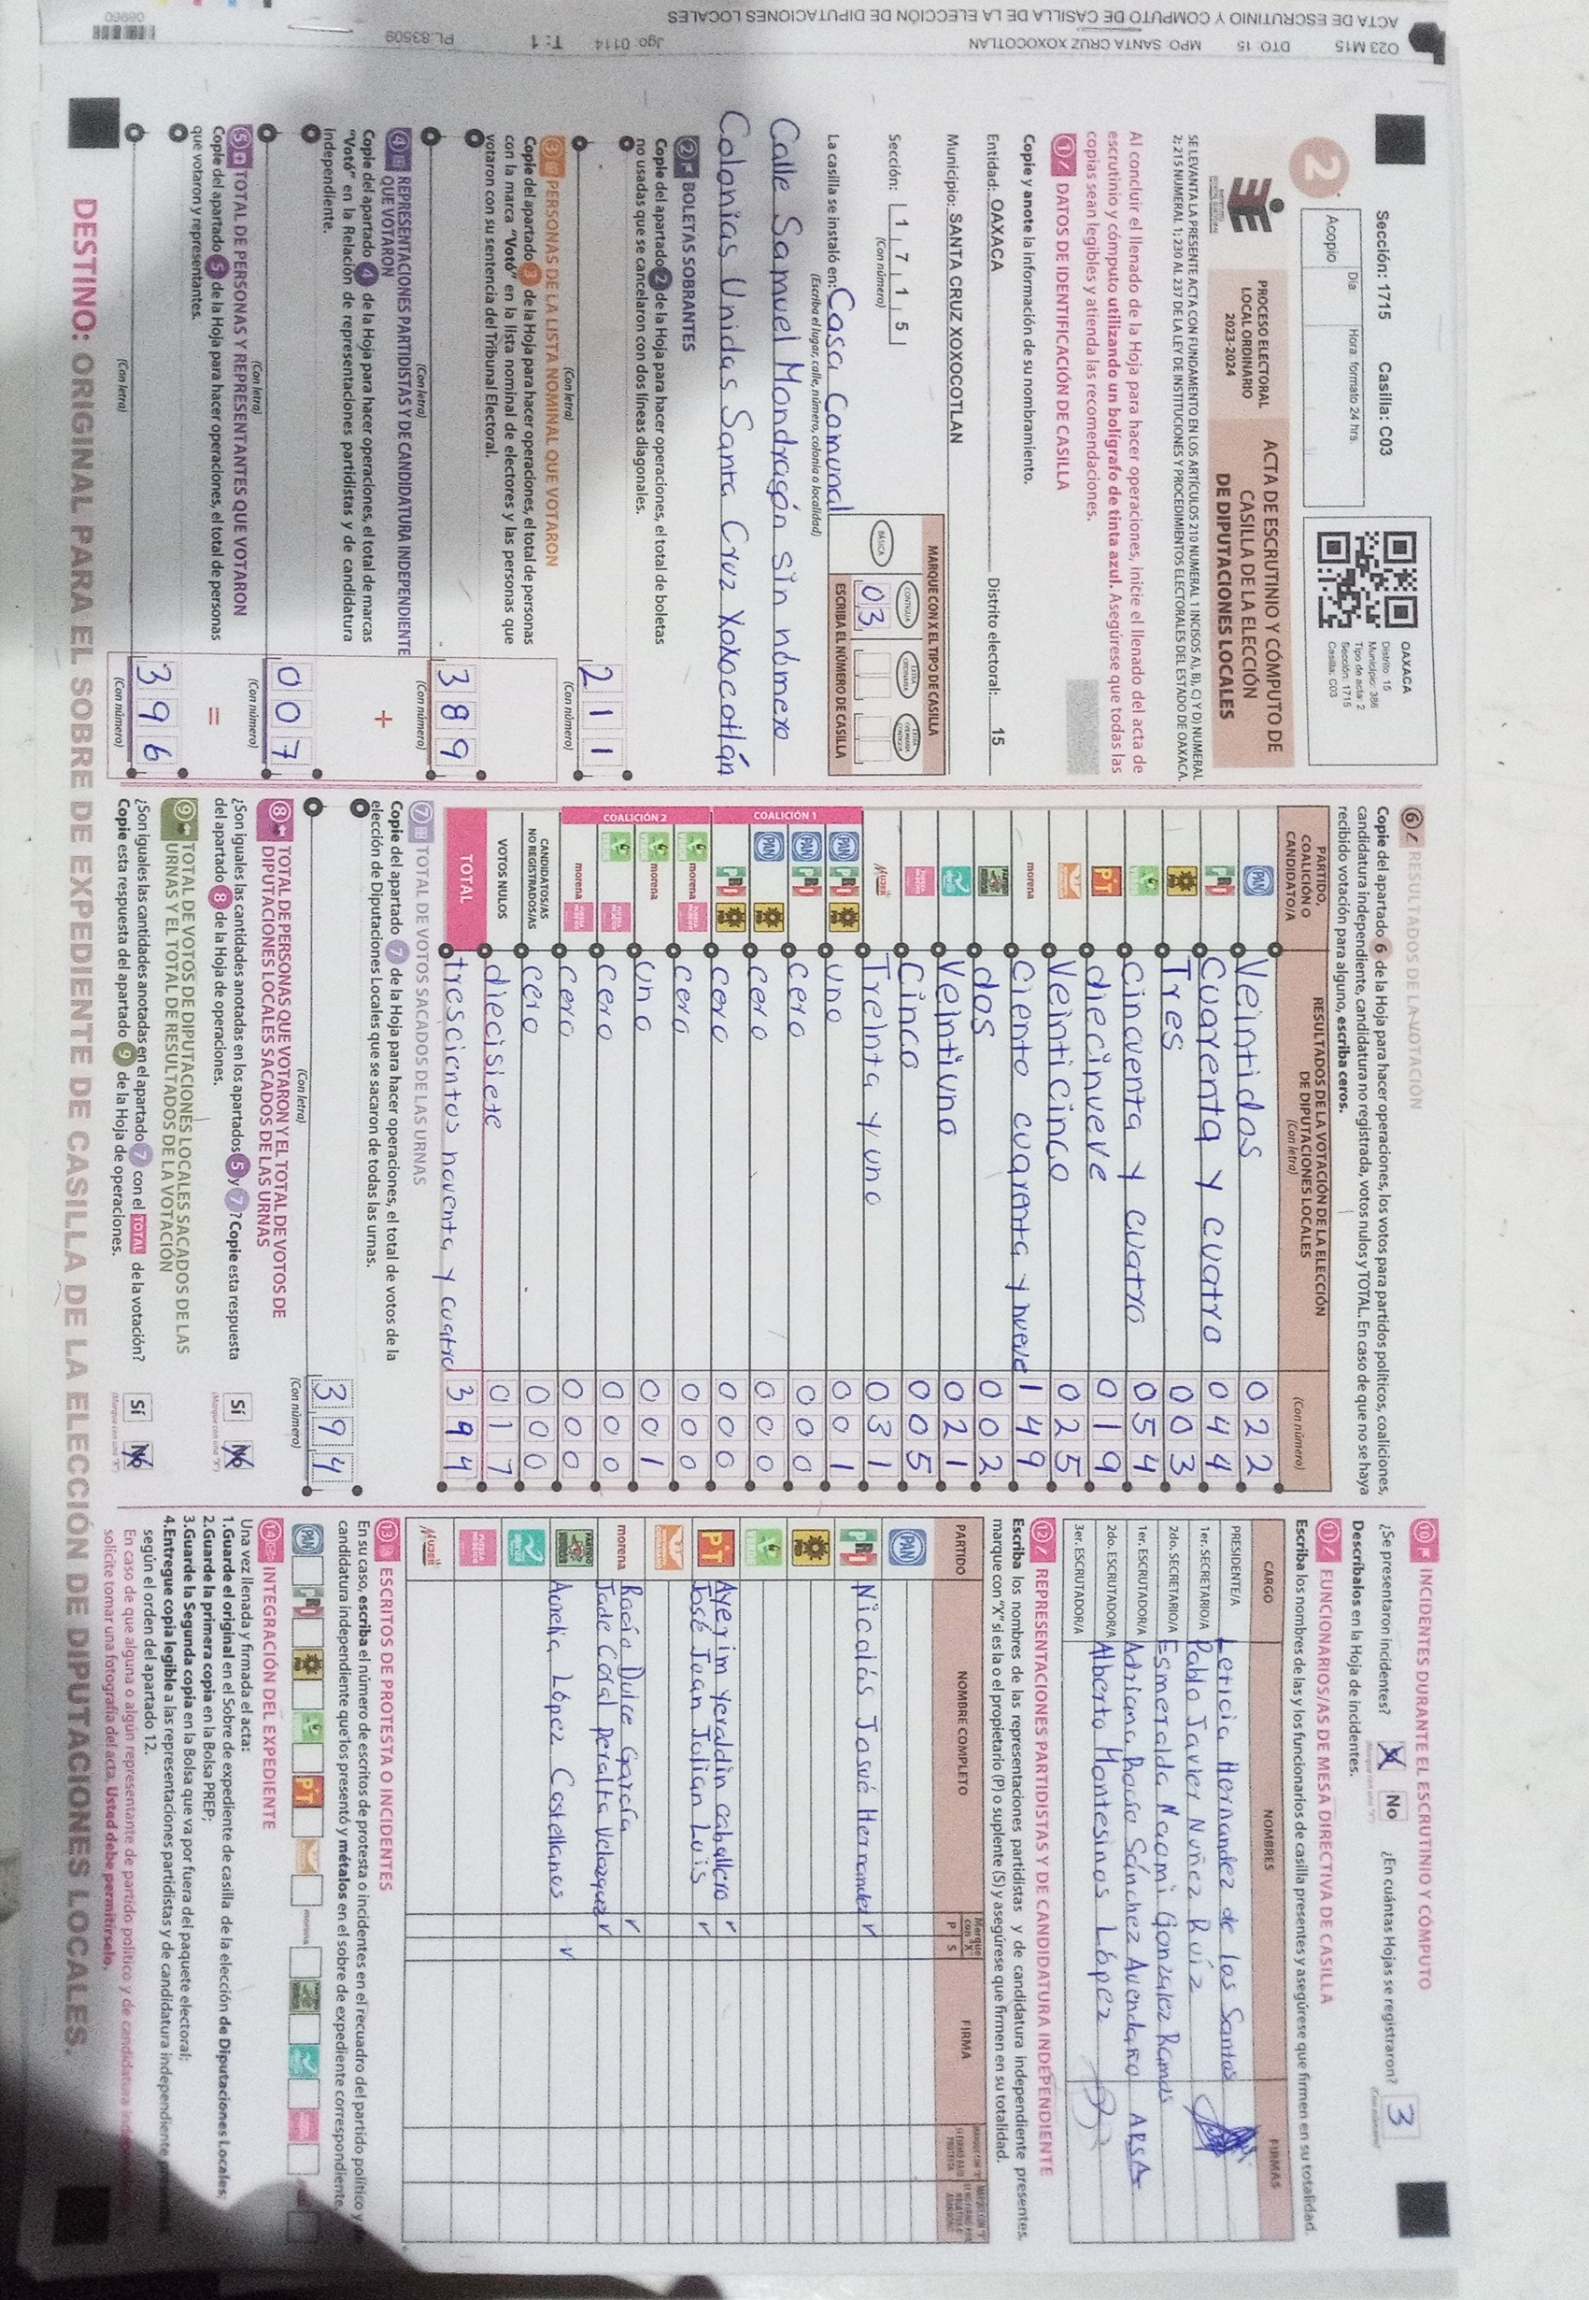 O23 M15 DTO. 15 MPO. SANTA CRUZ XOXOCOTLAN Jgo. 0114 T: 1 PL.83509
ACTA DE ESCRUTINIO Y COMPUTO DE CASILLA DE LA ELECCIÓN DE DIPUTACIONES LOCALES 08960
Sección: 1715 Casilla: C03
2
Día: Hora: formato 24 hrs.
Acopio
OAXACA
Distrito: 15
Municipio: 386
Tipo de acta: 2
Sección: 1715
Casilla: C03
PROCESO ELECTORAL
LOCAL ORDINARIO
2023-2024
ACTA DE ESCRUTINIO Y CÓMPUTO DE
CASILLA DE LA ELECCIÓN
DE DIPUTACIONES LOCALES
SE LEVANTA LA PRESENTE ACTA CON FUNDAMENTO EN LOS ARTÍCULOS 210 NUMERAL 1 INCISOS A), B), C) Y D) NUMERAL
2; 215 NUMERAL 1; 230 AL 237 DE LA LEY DE INSTITUCIONES Y PROCEDIMIENTOS ELECTORALES DEL ESTADO DE OAXACA.
Al concluir el llenado de la Hoja para hacer operaciones, inicie el llenado del acta de
escrutinio y cómputo utilizando un bolígrafo de tinta azul. Asegúrese que todas las
copias sean legibles y atienda las recomendaciones.
1 DATOS DE IDENTIFICACIÓN DE CASILLA
Copie y anote la información de su nombramiento.
Entidad: OAXACA Distrito electoral: 15
Municipio: SANTA CRUZ XOXOCOTLAN
Sección: 1 7 1 5
(Con número)
MARQUE CON X EL TIPO DE CASILLA
BÁSICA CONTIGUA
03
ESCRIBA EL NÚMERO DE CASILLA
La casilla se instaló en: Casa Comunal
(Escriba el lugar, calle, número, colonia o localidad)
Calle Samuel Mondragón sin número
Colonias Unidas Santa Cruz Xoxocotlán
2 BOLETAS SOBRANTES
Copie del apartado 2 de la Hoja para hacer operaciones, el total de boletas
no usadas que se cancelaron con dos líneas diagonales.
2 1 1
(Con letra) (Con número)
3 PERSONAS DE LA LISTA NOMINAL QUE VOTARON
Copie del apartado 3 de la Hoja para hacer operaciones, el total de personas
con la marca "Votó" en la lista nominal de electores y las personas que
votaron con su sentencia del Tribunal Electoral.
3 8 9
(Con letra) (Con número)
4 REPRESENTACIONES PARTIDISTAS Y DE CANDIDATURA INDEPENDIENTE
QUE VOTARON
+
Copie del apartado 4 de la Hoja para hacer operaciones, el total de marcas
"Votó" en la Relación de representaciones partidistas y de candidatura
independiente.
0 0 7
(Con letra) (Con número)
5 TOTAL DE PERSONAS Y REPRESENTANTES QUE VOTARON
=
Copie del apartado 5 de la Hoja para hacer operaciones, el total de personas
que votaron y representantes.
3 9 6
(Con letra) (Con número)
6 RESULTADOS DE LA VOTACIÓN
Copie del apartado 6 de la Hoja para hacer operaciones, los votos para partidos políticos, coaliciones,
candidatura independiente, candidatura no registrada, votos nulos y TOTAL. En caso de que no se haya
recibido votación para alguno, escriba ceros.
PARTIDO,
COALICIÓN O
CANDIDATO/A
RESULTADOS DE LA VOTACIÓN DE LA ELECCIÓN
DE DIPUTACIONES LOCALES
(Con letra) (Con número)
PAN Veintidos 0 2 2
PRI Cuarenta y cuatro 0 4 4
PRD Tres 0 0 3
VERDE Cincuenta y cuatro 0 5 4
PT diecinueve 0 1 9
Veinticinco 0 2 5
morena Ciento cuarenta y nueve 1 4 9
dos 0 0 2
Veintiuno 0 2 1
Cinco 0 0 5
MUJER Treinta y uno 0 3 1
COALICIÓN 1
PAN PRI PRD uno 0 0 1
PAN PRI cero 0 0 0
PAN PRD cero 0 0 0
PRI PRD cero 0 0 0
COALICIÓN 2
VERDE morena cero 0 0 0
VERDE morena uno 0 0 1
VERDE cero 0 0 0
morena cero 0 0 0
CANDIDATOS/AS
NO REGISTRADOS/AS cero 0 0 0
VOTOS NULOS diecisiete 0 1 7
TOTAL trescientos noventa y cuatro 3 9 4
7 TOTAL DE VOTOS SACADOS DE LAS URNAS
Copie del apartado 7 de la Hoja para hacer operaciones, el total de votos de la
elección de Diputaciones Locales que se sacaron de todas las urnas.
3 9 4
(Con letra) (Con número)
8 TOTAL DE PERSONAS QUE VOTARON Y EL TOTAL DE VOTOS DE
DIPUTACIONES LOCALES SACADOS DE LAS URNAS
¿Son iguales las cantidades anotadas en los apartados 5 y 7? Copie esta respuesta
del apartado 8 de la Hoja de operaciones.
Sí No
(Marque con una "X")
9 TOTAL DE VOTOS DE DIPUTACIONES LOCALES SACADOS DE LAS
URNAS Y EL TOTAL DE RESULTADOS DE LA VOTACIÓN
¿Son iguales las cantidades anotadas en el apartado 7 con el TOTAL de la votación?
Copie esta respuesta del apartado 9 de la Hoja de operaciones.
Sí No
(Marque con una "X")
10 INCIDENTES DURANTE EL ESCRUTINIO Y CÓMPUTO
¿Se presentaron incidentes? No ¿En cuántas Hojas se registraron? 3
Descríbalos en la Hoja de incidentes.
11 FUNCIONARIOS/AS DE MESA DIRECTIVA DE CASILLA
Escriba los nombres de las y los funcionarios de casilla presentes y asegúrese que firmen en su totalidad.
CARGO NOMBRES FIRMAS
PRESIDENTE/A Leticia Hernandez de los Santos
1er. SECRETARIO/A Pablo Javier Nuñez Ruíz
2do. SECRETARIO/A Esmeralda Noemi Gonzalez Ramos
1er. ESCRUTADOR/A Adriana Rocío Sánchez Avendaño ARSA
2do. ESCRUTADOR/A Alberto Montesinos López
3er. ESCRUTADOR/A
12 REPRESENTACIONES PARTIDISTAS Y DE CANDIDATURA INDEPENDIENTE
Escriba los nombres de las representaciones partidistas y de candidatura independiente presentes,
marque con "X" si es la o el propietario (P) o suplente (S) y asegúrese que firmen en su totalidad.
PARTIDO NOMBRE COMPLETO Marque con "X" P S FIRMA
PAN
PRI Nicolás Josué Hernandez
PRD
VERDE
PT Ayerim Yeraldin caballero
José Juan Julian Luis
morena Rocío Dulce García
Jade Coral Peralta Velazquez
Aurelia López Castellanos
MUJER
13 ESCRITOS DE PROTESTA O INCIDENTES
En su caso, escriba el número de escritos de protesta o incidentes en el recuadro del partido político y
candidatura independiente que los presentó y métalos en el sobre de expediente correspondiente.
PAN PRI PRD PT morena
14 INTEGRACIÓN DEL EXPEDIENTE
Una vez llenada y firmada el acta:
1.Guarde el original en el Sobre de expediente de casilla de la elección de Diputaciones Locales;
2.Guarde la primera copia en la Bolsa PREP;
3.Guarde la Segunda copia en la Bolsa que va por fuera del paquete electoral;
4.Entregue copia legible a las representaciones partidistas y de candidatura independiente
según el orden del apartado 12.
En caso de que alguna o algún representante de partido político y de candidatura
solicite tomar una fotografía del acta. Usted debe permitírselo.
DESTINO: ORIGINAL PARA EL SOBRE DE EXPEDIENTE DE CASILLA DE LA ELECCIÓN DE DIPUTACIONES LOCALES.